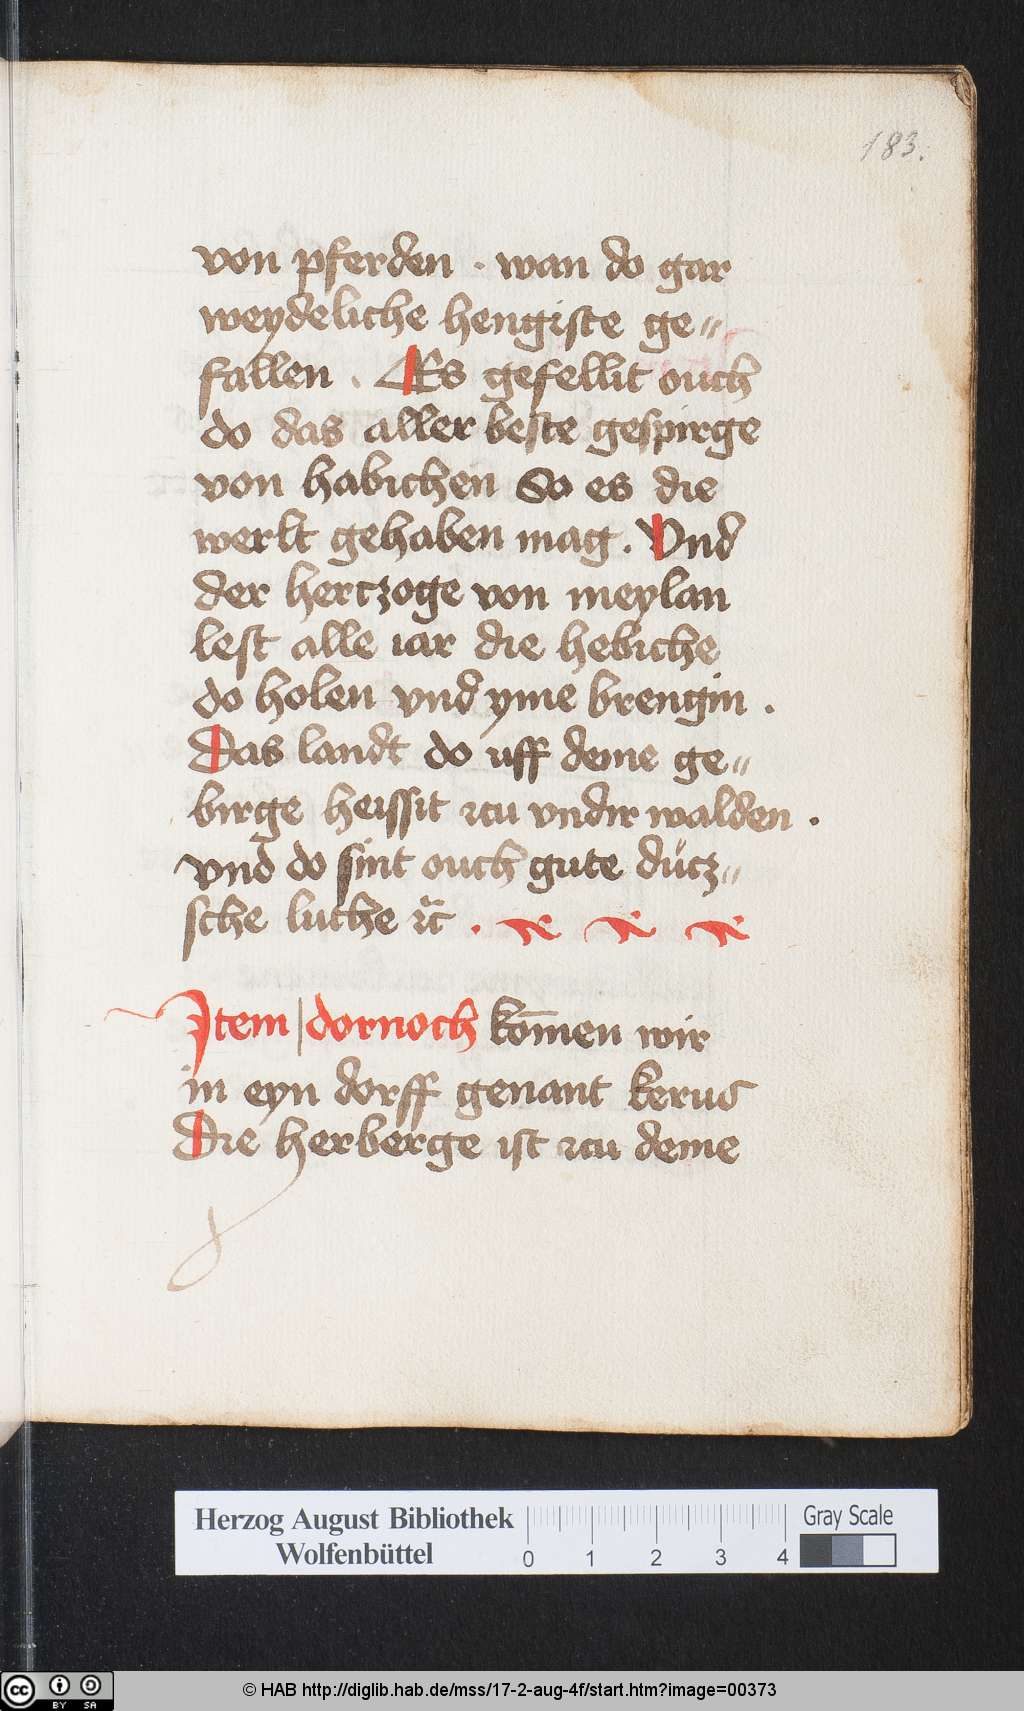 183.
von pferden · wan do gar
weydeliche hengiste ge„
fallen . Es gefellit ouch
do das aller beste gespirge
von habichen So es die
werlt gehaben mag . Vnd
der hertzoge von meylan
lest alle iar die hebiche
do holen vnd yme brengin .
Das landt do uff deme ge„
birge heissit zcu vndir walden .
vnd do sint ouch gute dütz„
sche luthe ꝛc̃ .
Item | dornoch kom̄en wir
in eyn dorff genant kerus
Die herberge ist zcu deme
Herzog August Bibliothek
Wolfenbüttel
0 1 2 3 4
Gray Scale
cc BY SA
© HAB http://diglib.hab.de/mss/17-2-aug-4f/start.htm?image=00373